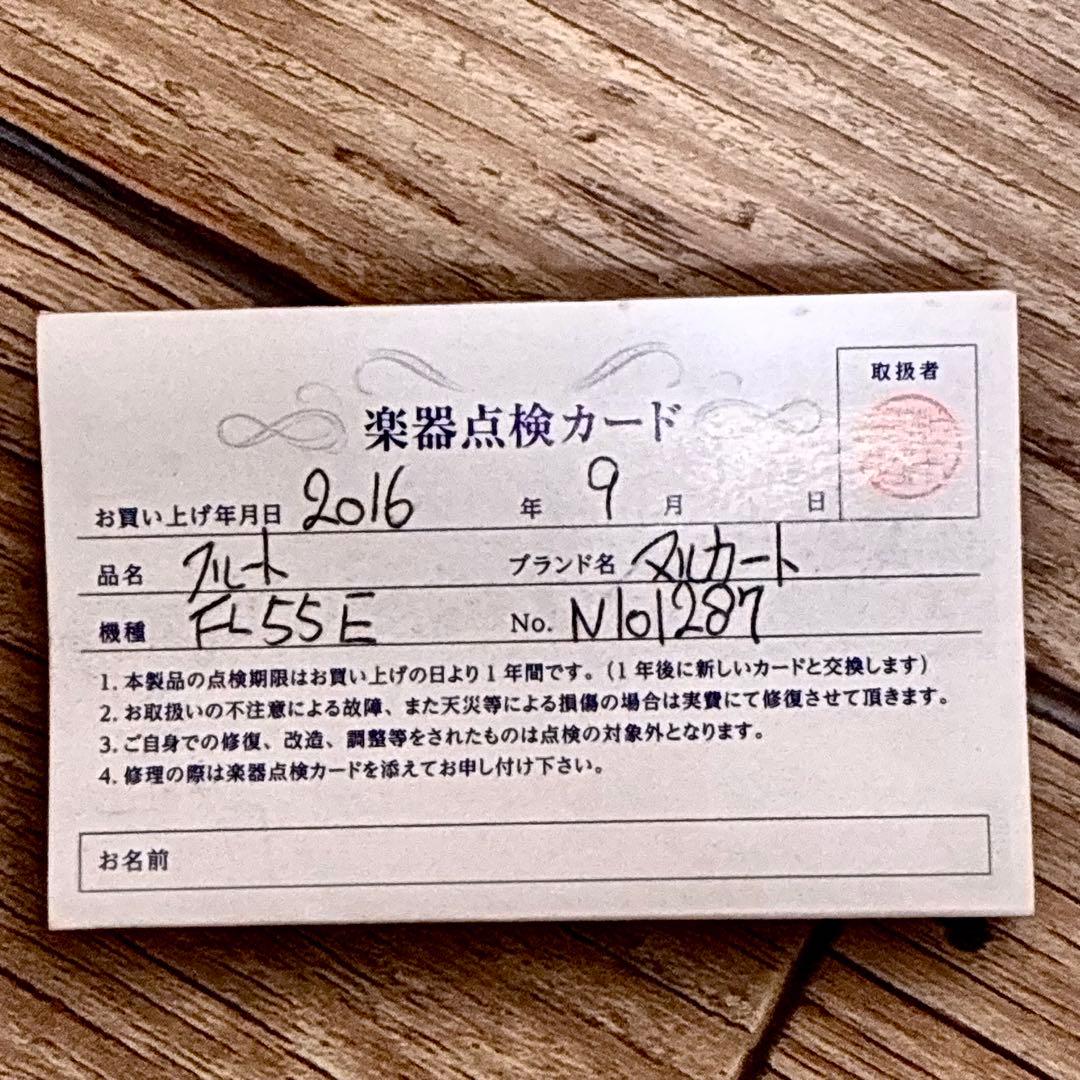 取扱者
楽器点検カード
お買い上げ年月日 2016 年 9 月 日
品名 フルート ブランド名 マルカート
機種 FL55E No. N101287
1. 本製品の点検期限はお買い上げの日より1年間です。(1年後に新しいカードと交換します)
2. お取扱いの不注意による故障、また天災等による損傷の場合は実費にて修復させて頂きます。
3. ご自身での修復、改造、調整等をされたものは点検の対象外となります。
4. 修理の際は楽器点検カードを添えてお申し付け下さい。
お名前